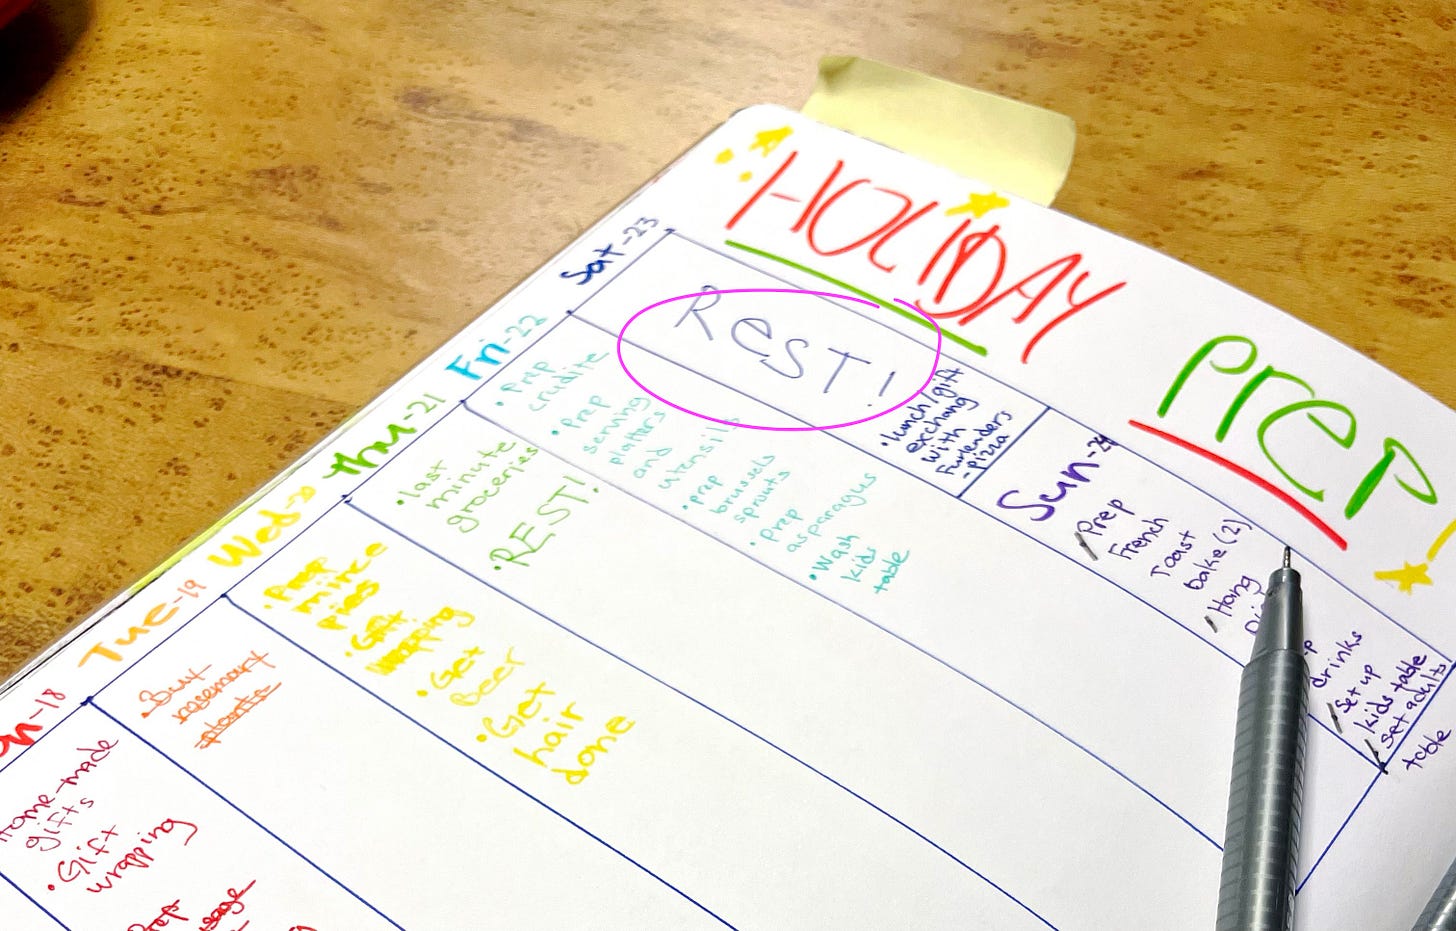 HOLIDAY
PREP!
Sat-23
REST!
• lunch/gift
exchang
with
- pizza
Fri-22
• Prep
crudite
• Prep
serving
platters
and
utensils
• prep
brussels
sprouts
• Prep
asparagus
• Wash
kids
table
Thu-21
• last
minute
groceries
• REST!
Wed-20
• Prep
mince
pies
• Gift
wrapping
• Get
Beer
• Get
hair
done
Tue-19
• Buy
rosemary
plants
-18
Home-made
gifts
• Gift
wrapping
Prep
Sun-24
Prep
French
Toast
bake (2)
Hang
drinks
Set up
kids table
Set adults
table